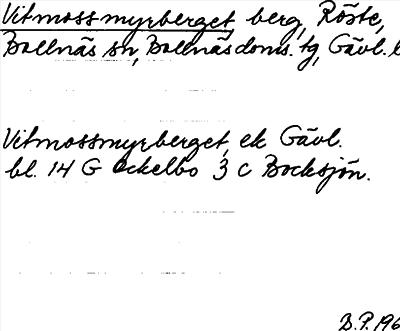 Vitmossmyrberget, berg, Röste,
Bollnäs sn, Bollnäs doms. tg, Gävl. l
Vitmossmyrberget, ek Gävl.
bl. 14 G Ockelbo 3 C Bocksjön.
B.P. 196